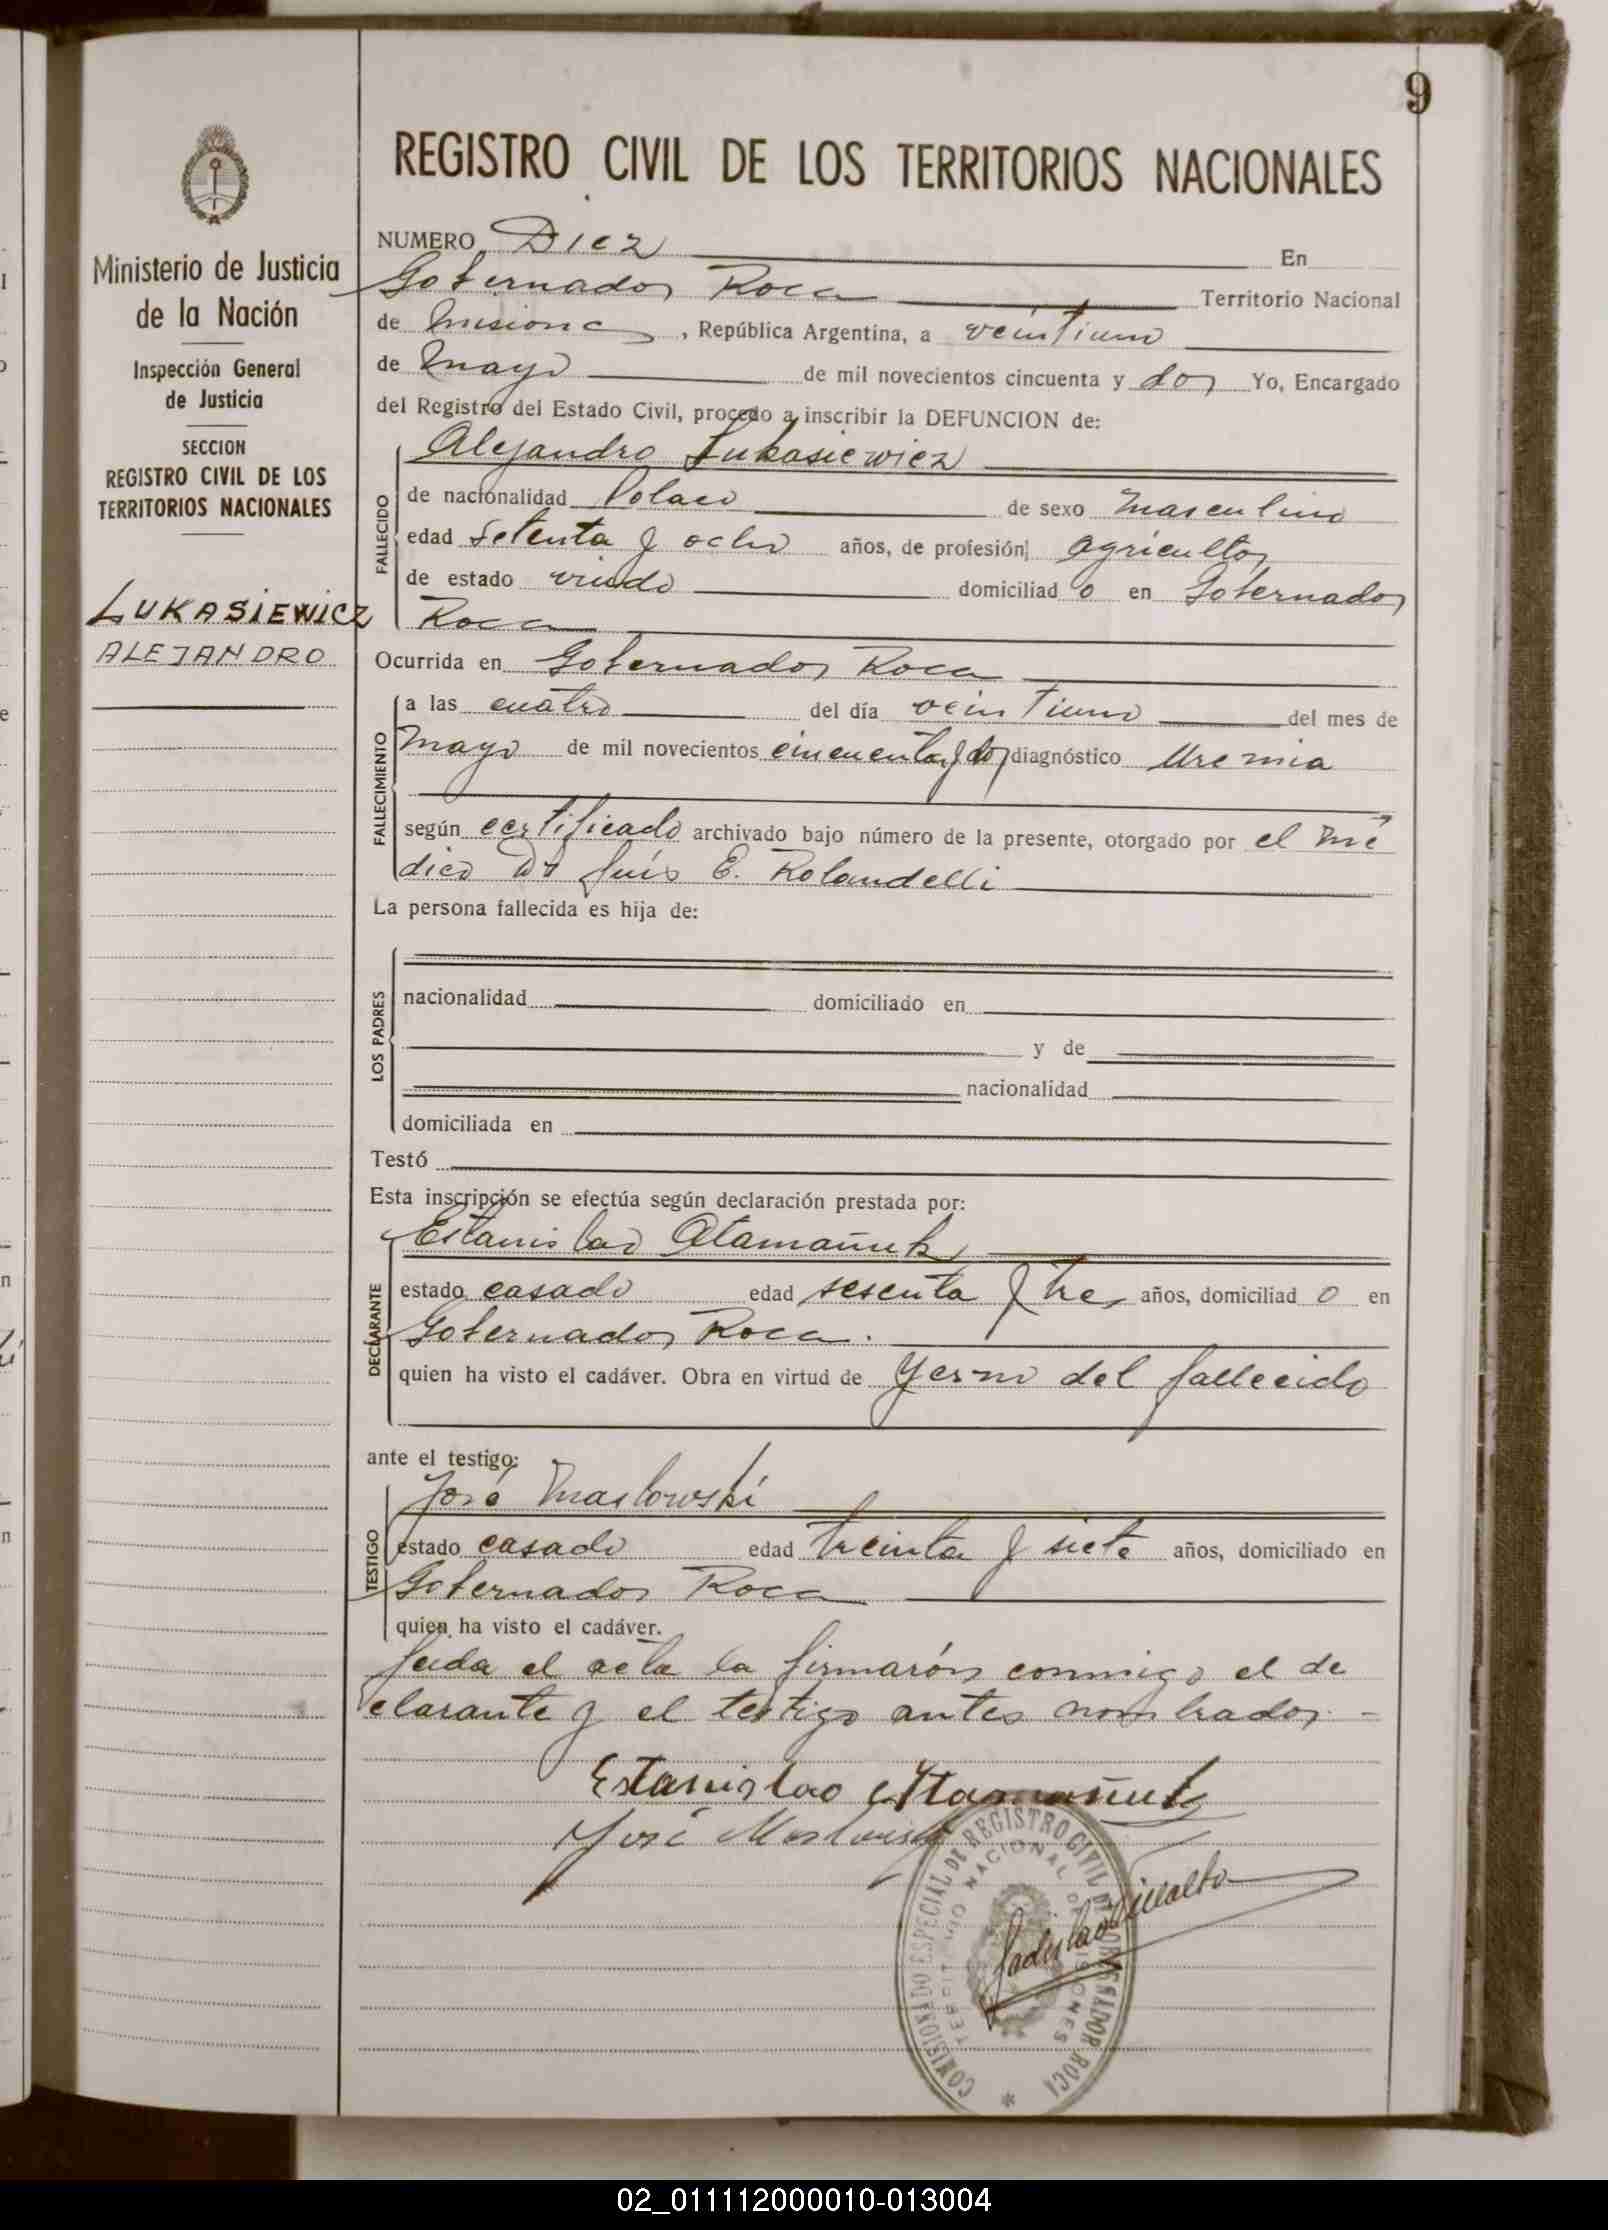 9
REGISTRO CIVIL DE LOS TERRITORIOS NACIONALES
Ministerio de Justicia
de la Nación
Inspección General
de Justicia
SECCION
REGISTRO CIVIL DE LOS
TERRITORIOS NACIONALES
LUKASIEWICZ
ALEJANDRO
NUMERO Diez En
Gobernador Roca Territorio Nacional
de Misiones, República Argentina, a veintiuno
de Mayo de mil novecientos cincuenta y dos Yo, Encargado
del Registro del Estado Civil, procedo a inscribir la DEFUNCION de:
Alejandro Lukasiewicz
FALLECIDO
de nacionalidad Polaco de sexo Masculino
edad Setenta y ocho años, de profesión agricultor
de estado viudo domiciliado en Gobernador
Roca
Ocurrida en Gobernador Roca
FALLECIMIENTO
a las cuatro del día veintiuno del mes de
Mayo de mil novecientos cincuenta y dos diagnóstico Uremia
según certificado archivado bajo número de la presente, otorgado por el mé
dico Dr Luís E. Rolandelli
La persona fallecida es hija de:
LOS PADRES
nacionalidad domiciliado en
y de
nacionalidad
domiciliada en
Testó
Esta inscripción se efectúa según declaración prestada por:
Estanislao Atamañuk
DECLARANTE
estado casado edad sesenta y tres años, domiciliado en
Gobernador Roca.
quien ha visto el cadáver. Obra en virtud de Yerno del fallecido
ante el testigo:
José Maslowski
TESTIGO
estado casado edad treinta y siete años, domiciliado en
Gobernador Roca
quien ha visto el cadáver.
Leída el acta la firmarón conmigo el de
clarante y el testigo antes nombrados. -
Estanislao Atamañuk
José Maslowski
Ladislao Villalto
COMISIONADO ESPECIAL DE REGISTRO CIVIL GOBERNADOR ROCA
TERRITORIO NACIONAL DE MISIONES
02_011112000010-013004